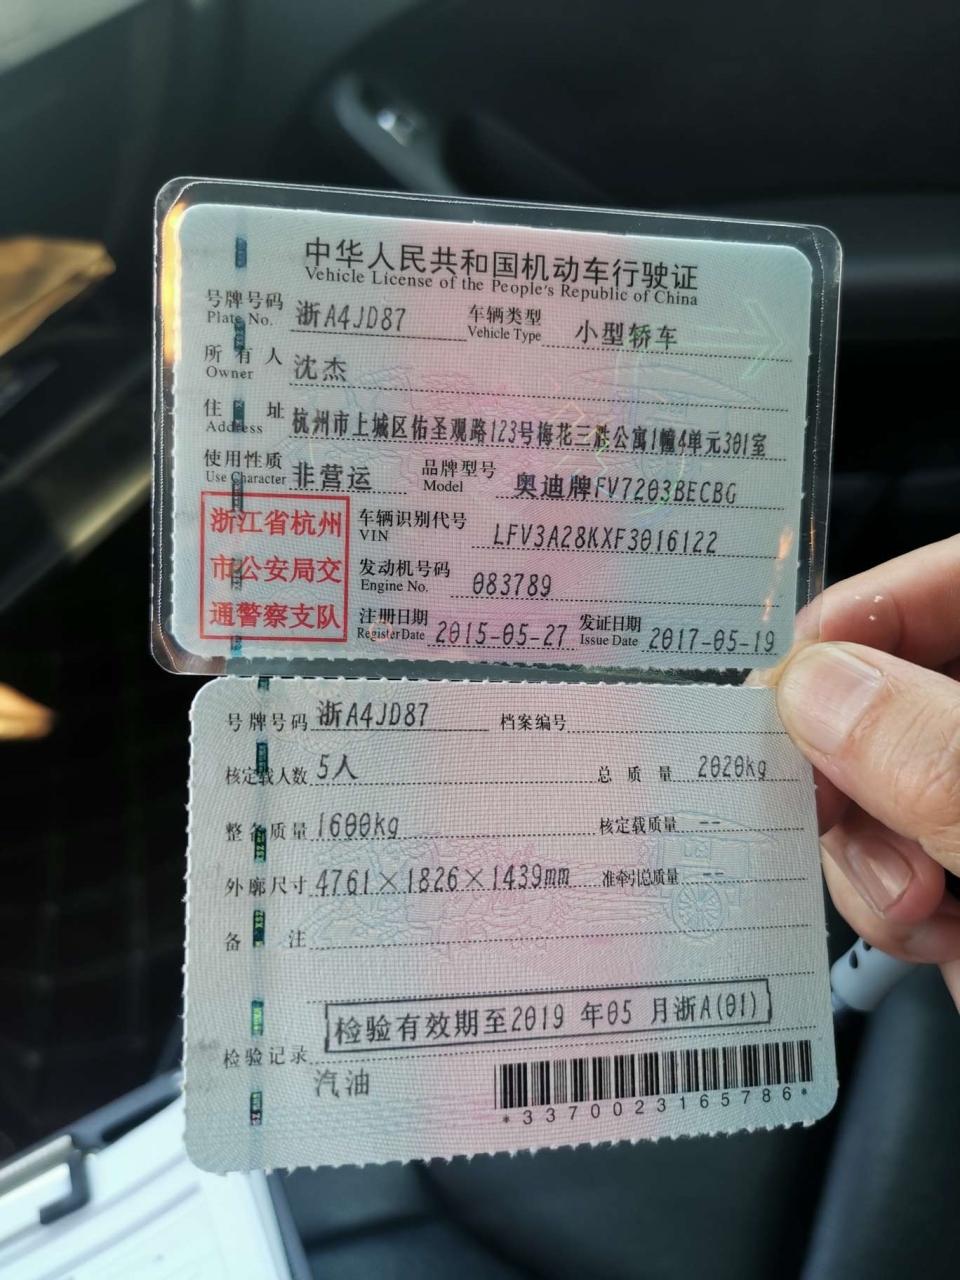 中华人民共和国机动车行驶证
Vehicle License of the People's Republic of China
号牌号码 Plate No. 浙A4JD87 车辆类型 Vehicle Type 小型轿车
所有人 Owner 沈杰
住址 Address 杭州市上城区佑圣观路123号梅花三胜公寓1幢4单元301室
使用性质 Use Character 非营运 品牌型号 Model 奥迪牌FV7203BECBG
浙江省杭州
市公安局交
通警察支队
车辆识别代号 VIN LFV3A28KXF3016122
发动机号码 Engine No. 083789
注册日期 Register Date 2015-05-27 发证日期 Issue Date 2017-05-19
号牌号码 浙A4JD87 档案编号
核定载人数 5人 总质量 2020kg
整备质量 1600kg 核定载质量 --
外廓尺寸 4761×1826×1439mm 准牵引总质量 --
备注
检验有效期至2019 年05 月浙A(01)
检验记录
汽油
*3370023165786*